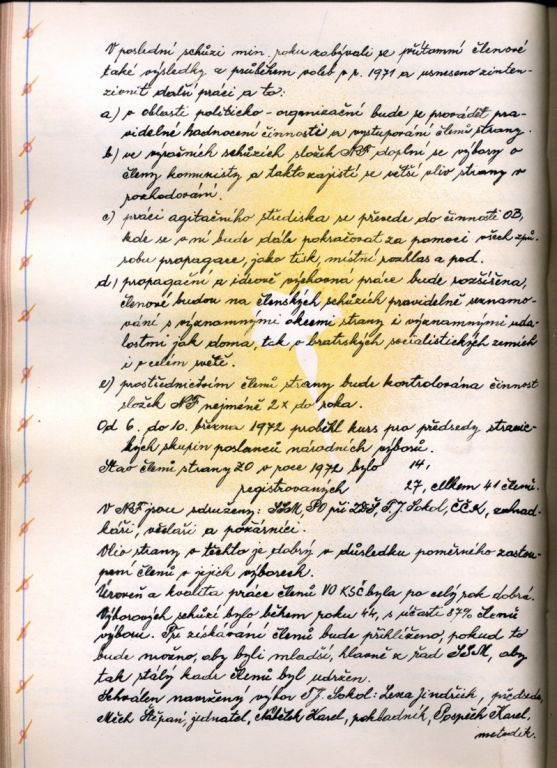 V poslední schůzi min. roku zabývali se přítomní členové
také výsledky a průběhem voleb v r. 1971 a usneseno zinten-
zivnit další práci a to:
a) v oblasti politicko-organizační bude se provádět pra-
videlné hodnocení činnosti a vystupování členů strany.
b) ve výročních schůzích složek NF doplní se výbory o
členy komunisty a takto zajistí se větší vliv strany v
rozhodování.
c) práci agitačního střediska se převede do činnosti OB,
kde se v ní bude dále pokračovat za pomoci všech způ-
sobu propagace, jako tisk, místní rozhlas a pod.
d) propagační a ideově výchovná práce bude rozšířena,
členové budou na členských schůzích pravidelně seznamo-
váni s významnými akcemi strany i významnými udá-
lostmi jak doma, tak v bratrských socialistických zemích
i v celém světě.
e) prostřednictvím členů strany bude kontrolována činnost
složek NF nejméně 2x do roka.
Od 6. do 10. března 1972 proběhl kurs pro předsedy stranic-
kých skupin poslanců národních výborů.
Stav členů strany ZO v roce 1972 bylo 14,
registrovaných 27, celkem 41 členů.
V NF jsou sdruženy: SSM, PO při ZDŠ, T.J. Sokol, ČČK, zahrád-
káři, včelaři a požárníci.
Vliv strany v těchto je dobrý v důsledku poměrného zastou-
pení členů v jejich výborech.
Úroveň a kvalita práce členů VO KSČ byla po celý rok dobrá.
Výborových schůzí bylo během roku 44, s účastí 87% členů
výboru. Při získávání členů bude přihlíženo, pokud to
bude možno, aby byli mladší, hlavně z řad SSM, aby
tak stálý kádr členů byl udržen.
Schválen navržený výbor T.J. Sokol: Lexa Jindřich, předseda,
Mich Štěpán, jednatel, Nábělek Karel, pokladník, Pospěch Karel,
metodik.